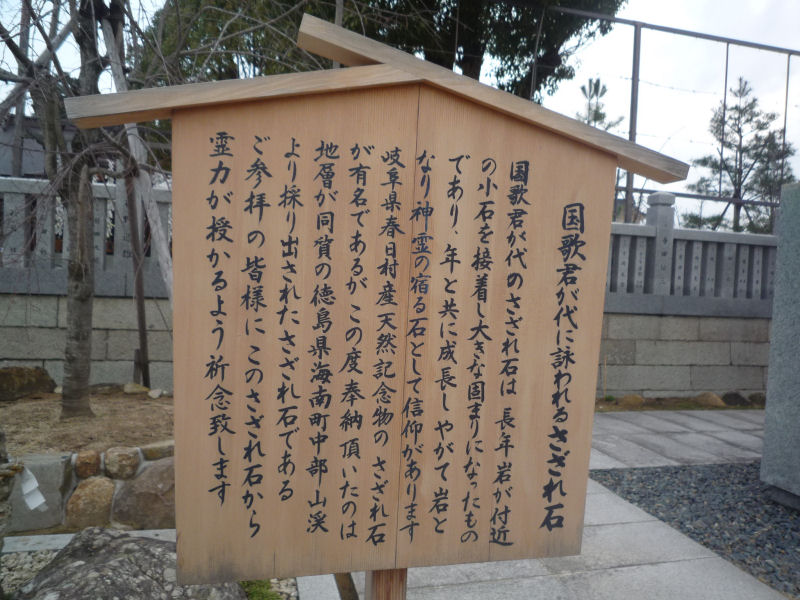 国歌君が代に詠われるさざれ石
国歌君が代のさざれ石は 長年岩が付近
の小石を接着し大きな固まりになったもの
であり、年と共に成長しやがて岩と
なり神霊の宿る石として信仰があります
岐阜県春日村産天然記念物の さざれ石
が有名であるが この度奉納頂いたのは
地層が同質の徳島県海南町中部山渓
より採り出されたさざれ石である
ご参拝の皆様に このさざれ石から
霊力が授かるよう祈念致します